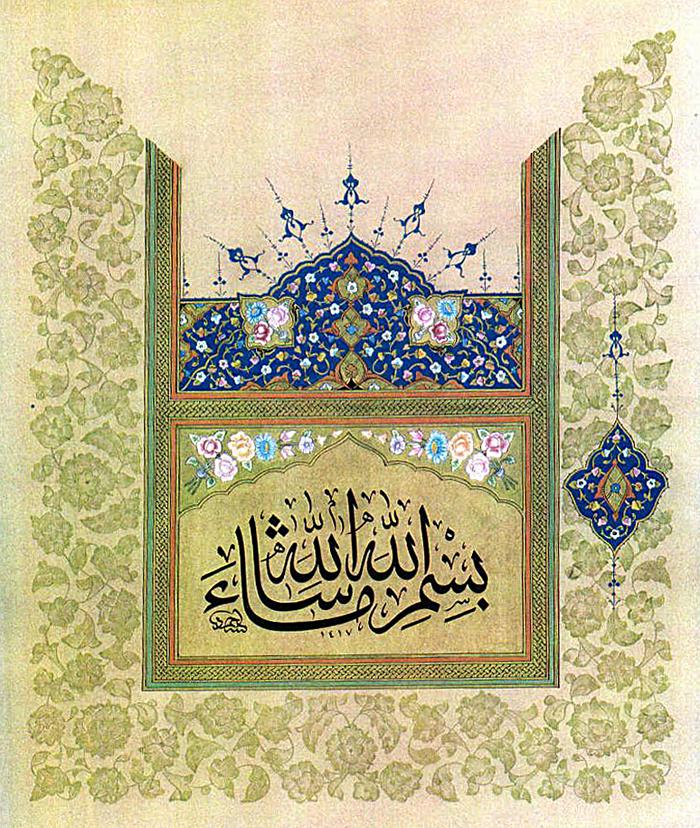 بِسْمِ اللّٰهِ مَا شَاءَ اللّٰهُ
١٤١٧